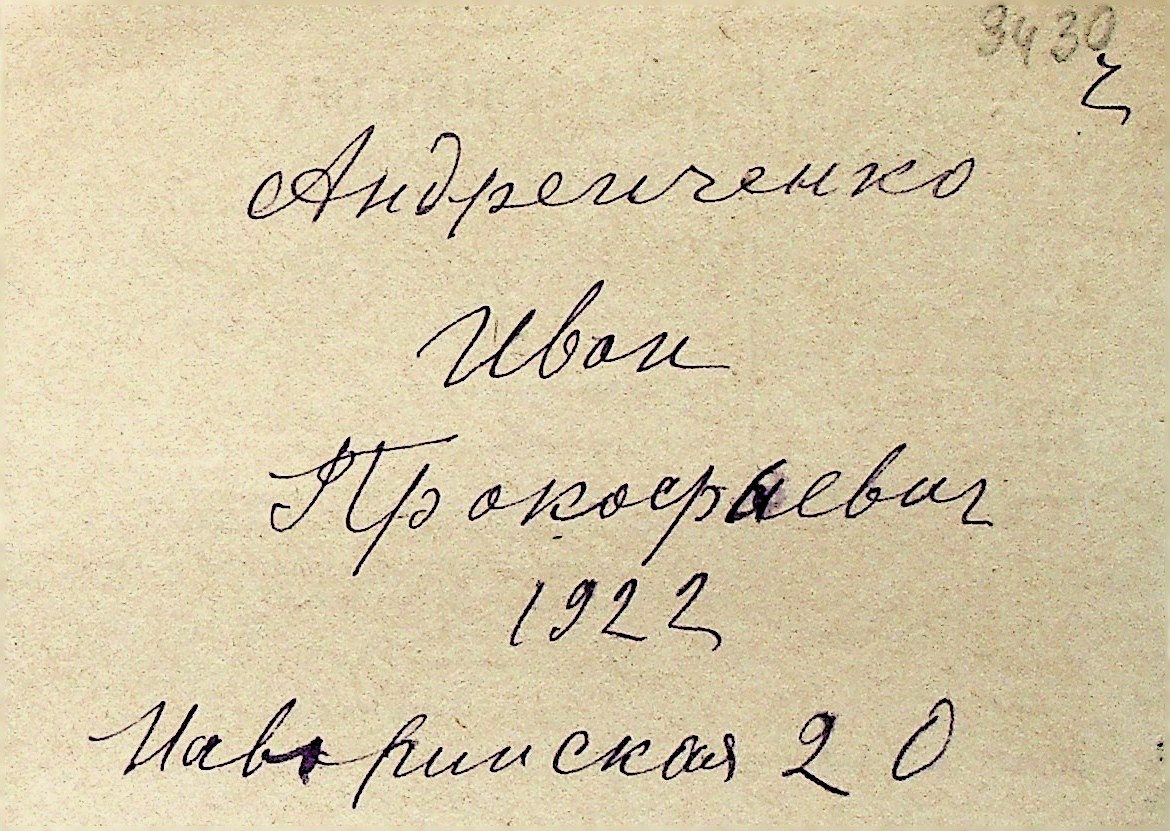 9430
2
Андреиченко
Иван
Прокофиевич
1922
Наваринская 20